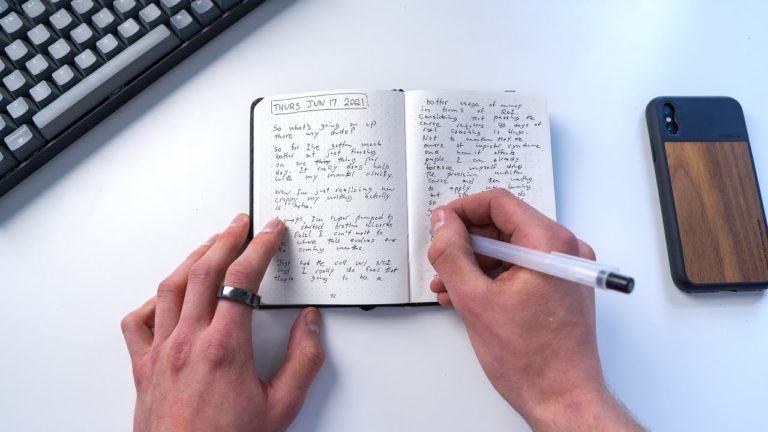 THURS JUN 17 2021
So what's going on up
there my dude?
So far I've gotten much
better at just focusing
on one thing per
day. It really does help
with my mental clarity.
Wow I'm just realizing how
crappy my writing actually
is haha.
I'm super pumped to
started
I can't wait to
where this evolves over
coming months.
Just had the call w/ NCI
and I really do feel that
they're going to be a
92
better usage of money
in terms of ROI.
Considering that passing the
course requires 40 days of
real coaching is huge.
Not to mention they're
aware of imposter syndrome
and how it affects
people. I can already
foresee myself doing
the precision nutrition
course and then wanting
to apply my learning
but